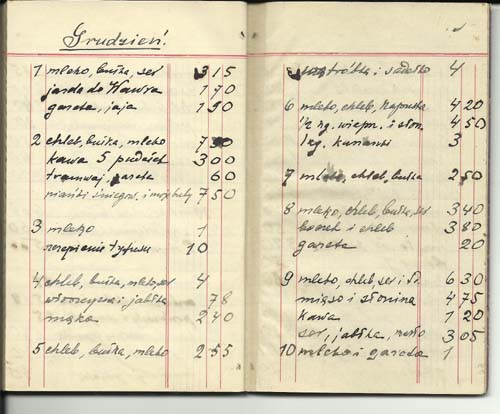 Grudzień.
1 mleko, bułka, ser 3 15
jazda do Wawra 1 70
gazeta, jaja 1 90
2 chleb, bułka, mleko 7
kawa 3 00
tramwaj, gazeta 60
7 50
3 mleko 1
10
4 chleb, bułka, mleko, ser 4
włoszczyzna i jabłka 78
mąka 2 40
5 chleb, bułka, mleko 2 55
i sadełko 4
6 mleko, chleb, kapusta 4 20
½ kg. wieprz. i słon. 4 50
1 kg. 3
7 mleko, chleb, bułka 2 50
8 mleko, chleb, bułka, ser 3 40
boczek i chleb 3 80
gazeta 20
9 mleko, chleb, ser i 6 30
mięso i słonina 4 75
kawa 1 20
ser, jabłka, masło 3 05
10 mleko i gazeta 1